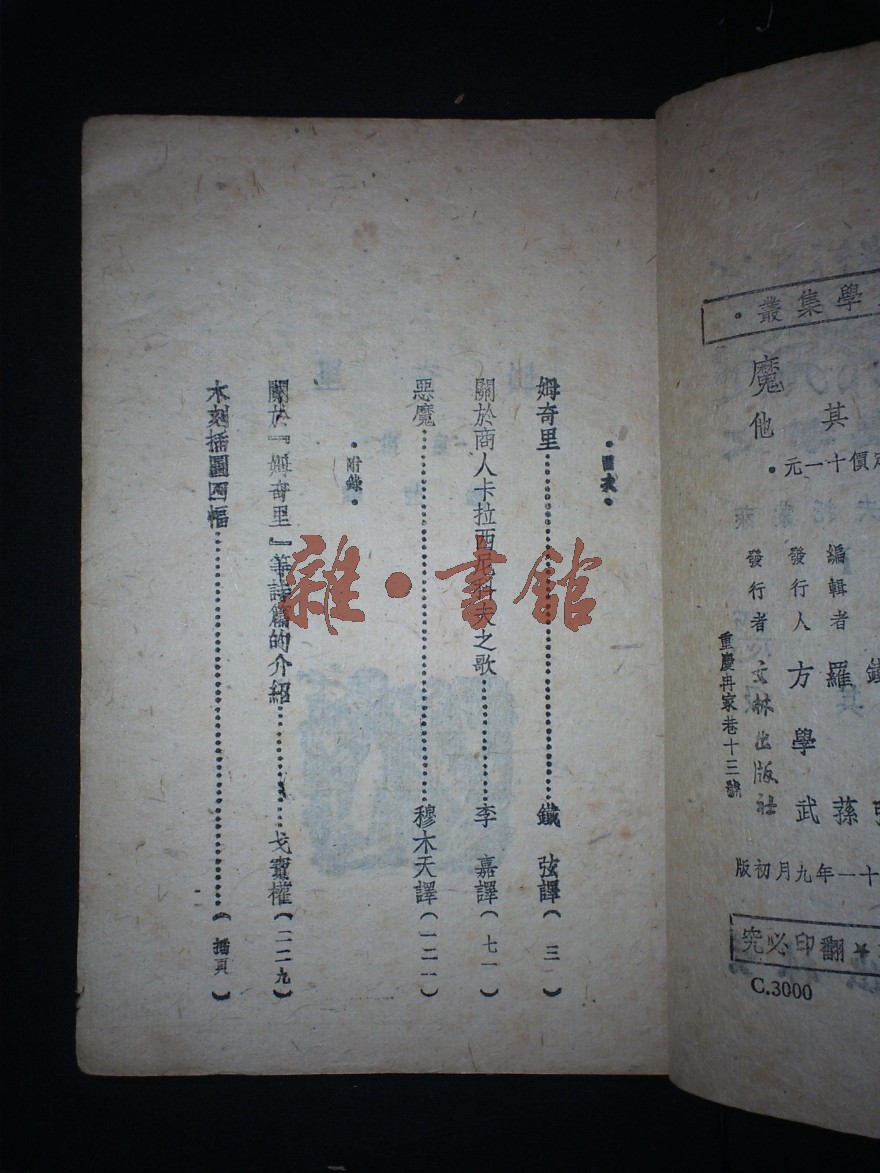 •目次•
姆奇里……鐵 弦譯（三）
關於商人卡拉西尼科夫之歌……李 嘉譯（七一）
惡魔……穆木天譯（一二一）
•附錄•
關於『姆奇里』等詩篇的介紹……戈寶權（二二九）
木刻插圖四幅……（插頁）
雜·書館
學集叢•
魔
其他
定價十一元
編輯者 羅蓀
發行人 方學武
發行者 文林出版社
重慶冉家巷十三號
十一年九月初版
翻印必究
C.3000